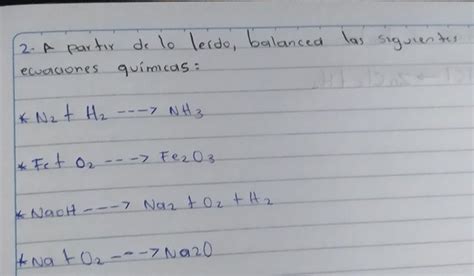 2. A partir de lo leído, balancea las siguientes
ecuaciones químicas:
* N₂ + H₂ ---> NH₃
* Fe + O₂ ---> Fe₂O₃
* NaOH ---> Na₂ + O₂ + H₂
* Na + O₂ ---> Na2O